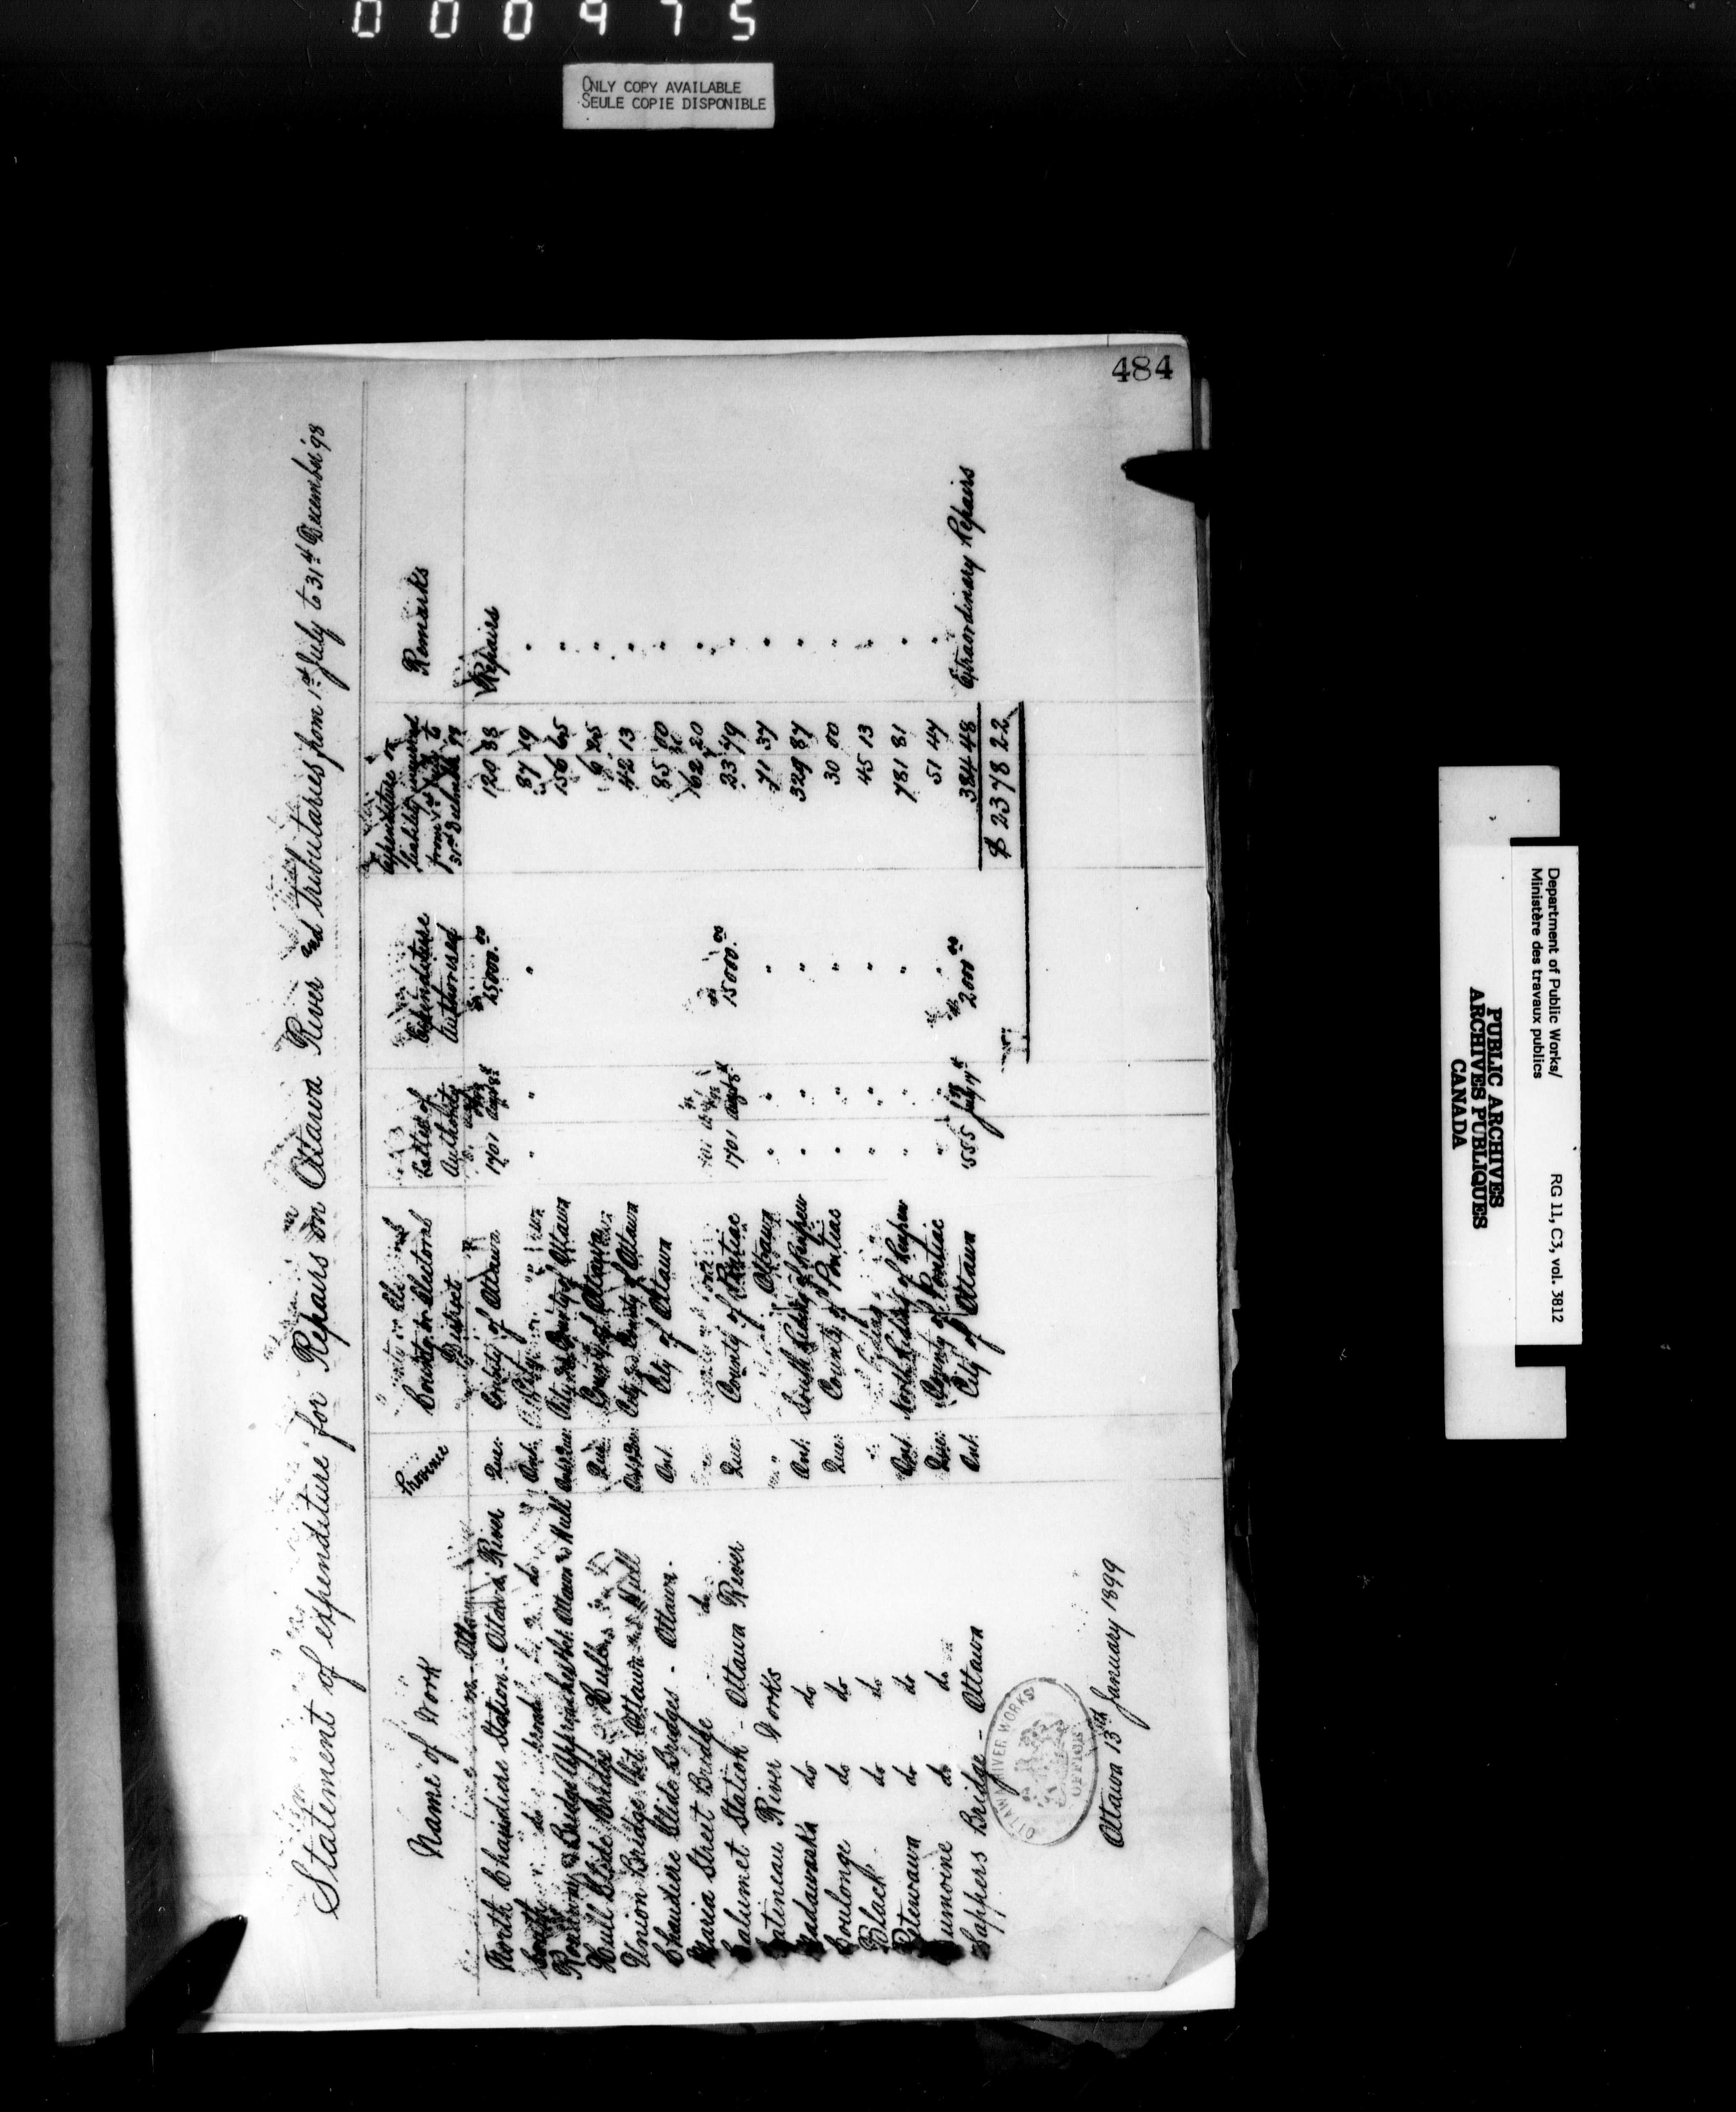 000975
ONLY COPY AVAILABLE
SEULE COPIE DISPONIBLE
484
Statement of expenditure for Repairs on Ottawa River and tributaries from 1st July to 31st December '98
Name of Work Province County or Electoral District Letter of Authority Expenditure Authorised Expenditure or liability incurred from 1st July to 31st December Remarks
North Chaudiere Station - Ottawa River Que: County of Ottawa 1701 Augt 8th 15000.00 120 88 Repairs
South do do Ont: City " " " " 87 19 "
Roadway & Bridge Approaches bet. Ottawa & Hull Ont & Que: City and County of Ottawa 156 65 "
Hull Slide Bridge - Hull Que: County of Ottawa 6 25 "
Union Bridge bet. Ottawa and Hull Ont & Que: City and County of Ottawa 42 13 "
Chaudiere Slide Bridges - Ottawa. Ont City of Ottawa 85 00 "
Maria Street Bridge do 162 20 "
Calumet Station - Ottawa River Que: County of Pontiac 1701 Augt 8th 15000.00 23 79 "
Gatineau River Works " " Ottawa " " " 71 37 "
Madawaska do do Ont: South Riding of Renfrew " " " 329 87 "
Coulonge do do Que: County of Pontiac " " " 30 00 "
Black do do " " " 45 13 "
Petewawa do do Ont North Riding of Renfrew " " " 781 81 "
Dumoine do do Que: County of Pontiac " " " 51 47 "
Sappers Bridge - Ottawa Ont: City of Ottawa 555 July 7th 2000.00 384 48 Extraordinary Repairs
$ 2378 22
OTTAWA RIVER WORKS
OFFICE
Ottawa 13th January 1899
Department of Public Works/
Ministère des travaux publics
RG 11, C3, vol. 3812
PUBLIC ARCHIVES
ARCHIVES PUBLIQUES
CANADA